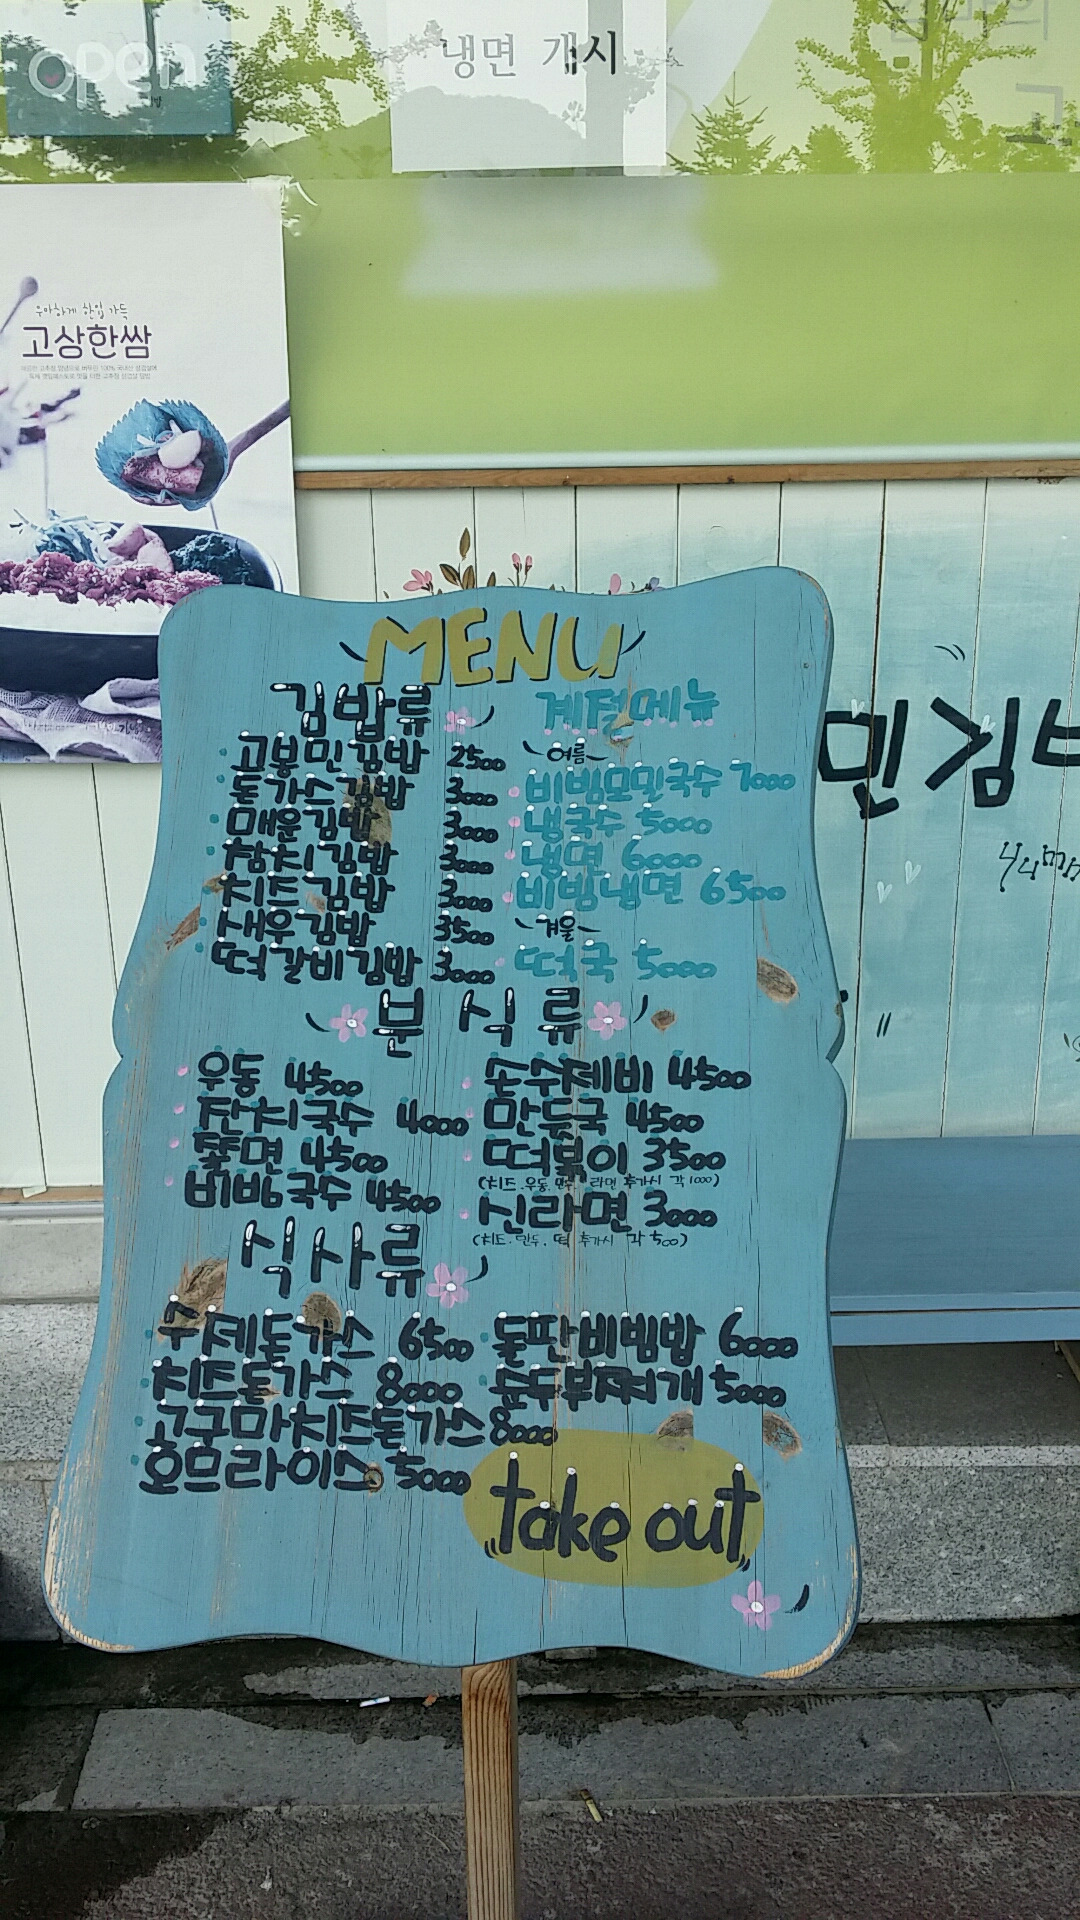 open
냉면 개시
우아하게 한입 가득
고상한쌈
민김
MENU
김밥류
고봉민김밥 2500
돈가스김밥 3000
매운김밥 3000
참치김밥 3000
치즈김밥 3000
새우김밥 3500
떡갈비김밥 3000
계절메뉴
여름
비빔모밀국수 7000
냉국수 5000
냉면 6000
비빔냉면 6500
겨울
떡국 5000
분식류
우동 4500
잔치국수 4000
쫄면 4500
비빔국수 4500
손수제비 4500
만두국 4500
떡볶이 3500
(치즈.우동.만두. 라면 추가시 각 1000)
신라면 3000
(치즈.만두.떡 추가시 각 500)
식사류
수제돈가스 6500
치즈돈가스 8000
고구마치즈돈가스 8000
오므라이스 5000
돌판비빔밥 6000
순두부찌개 5000
take out